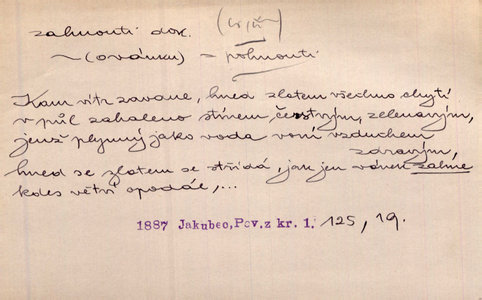 zahnouti dok.
~ (ovánku) = pohnouti
Kam vítr zavane, hned zlatem všechno chytí
v půl zahaleno stínem čerstvým, zelenavým,
jenž plynný jako voda voní vzduchem
zdravým,
hned se zlatem se střídá, jak jen vánek zahne
kdes větví opodál, ...
1887 Jakubec, Pov. z kr. 1. 125, 19.